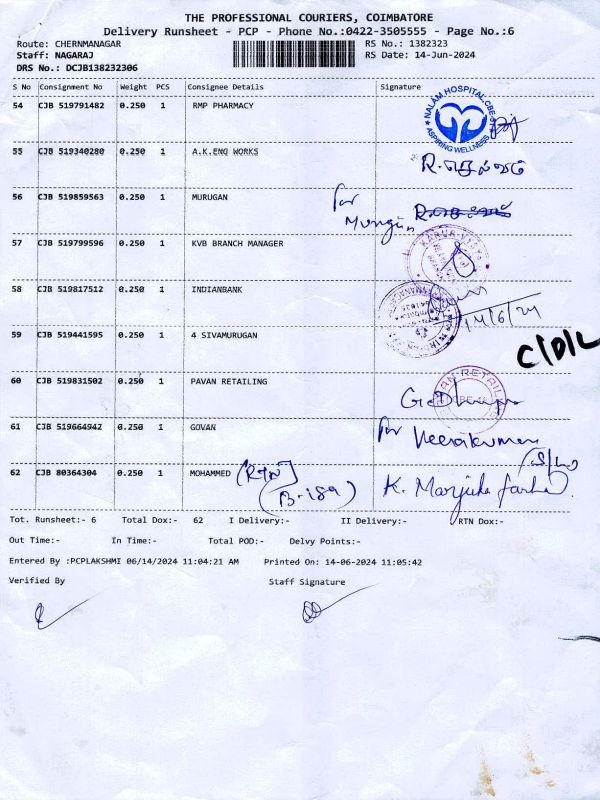 THE PROFESSIONAL COURIERS, COIMBATORE
Delivery Runsheet - PCP - Phone No.:0422-3505555 - Page No.:6
Route: CHERNMANAGAR RS No.: 1382323
Staff: NAGARAJ RS Date: 14-Jun-2024
DRS No.: DCJB138232306
S No Consignment No Weight PCS Consignee Details Signature
54 CJB 519791482 0.250 1 RMP PHARMACY
NALAM HOSPITAL,CBE
ASPIRING WELLNESS
55 CJB 519340280 0.250 1 A.K.ENG WORKS
R. செல்வம்
56 CJB 519859563 0.250 1 MURUGAN
for
Murugan
57 CJB 519799596 0.250 1 KVB BRANCH MANAGER
KARUR VYSYA
58 CJB 519817512 0.250 1 INDIANBANK
14/6/24
59 CJB 519441595 0.250 1 4 SIVAMURUGAN
C/D/L
60 CJB 519831502 0.250 1 PAVAN RETAILING
61 CJB 519664942 0.250 1 GOVAN
for Veerakumar
62 CJB 80364304 0.250 1 MOHAMMED (RTN)
(B-189) K. Manjula
Tot. Runsheet:- 6 Total Dox:- 62 I Delivery:- II Delivery:- RTN Dox:-
Out Time:- In Time:- Total POD:- Delvy Points:-
Entered By :PCPLAKSHMI 06/14/2024 11:04:21 AM Printed On: 14-06-2024 11:05:42
Verified By Staff Signature